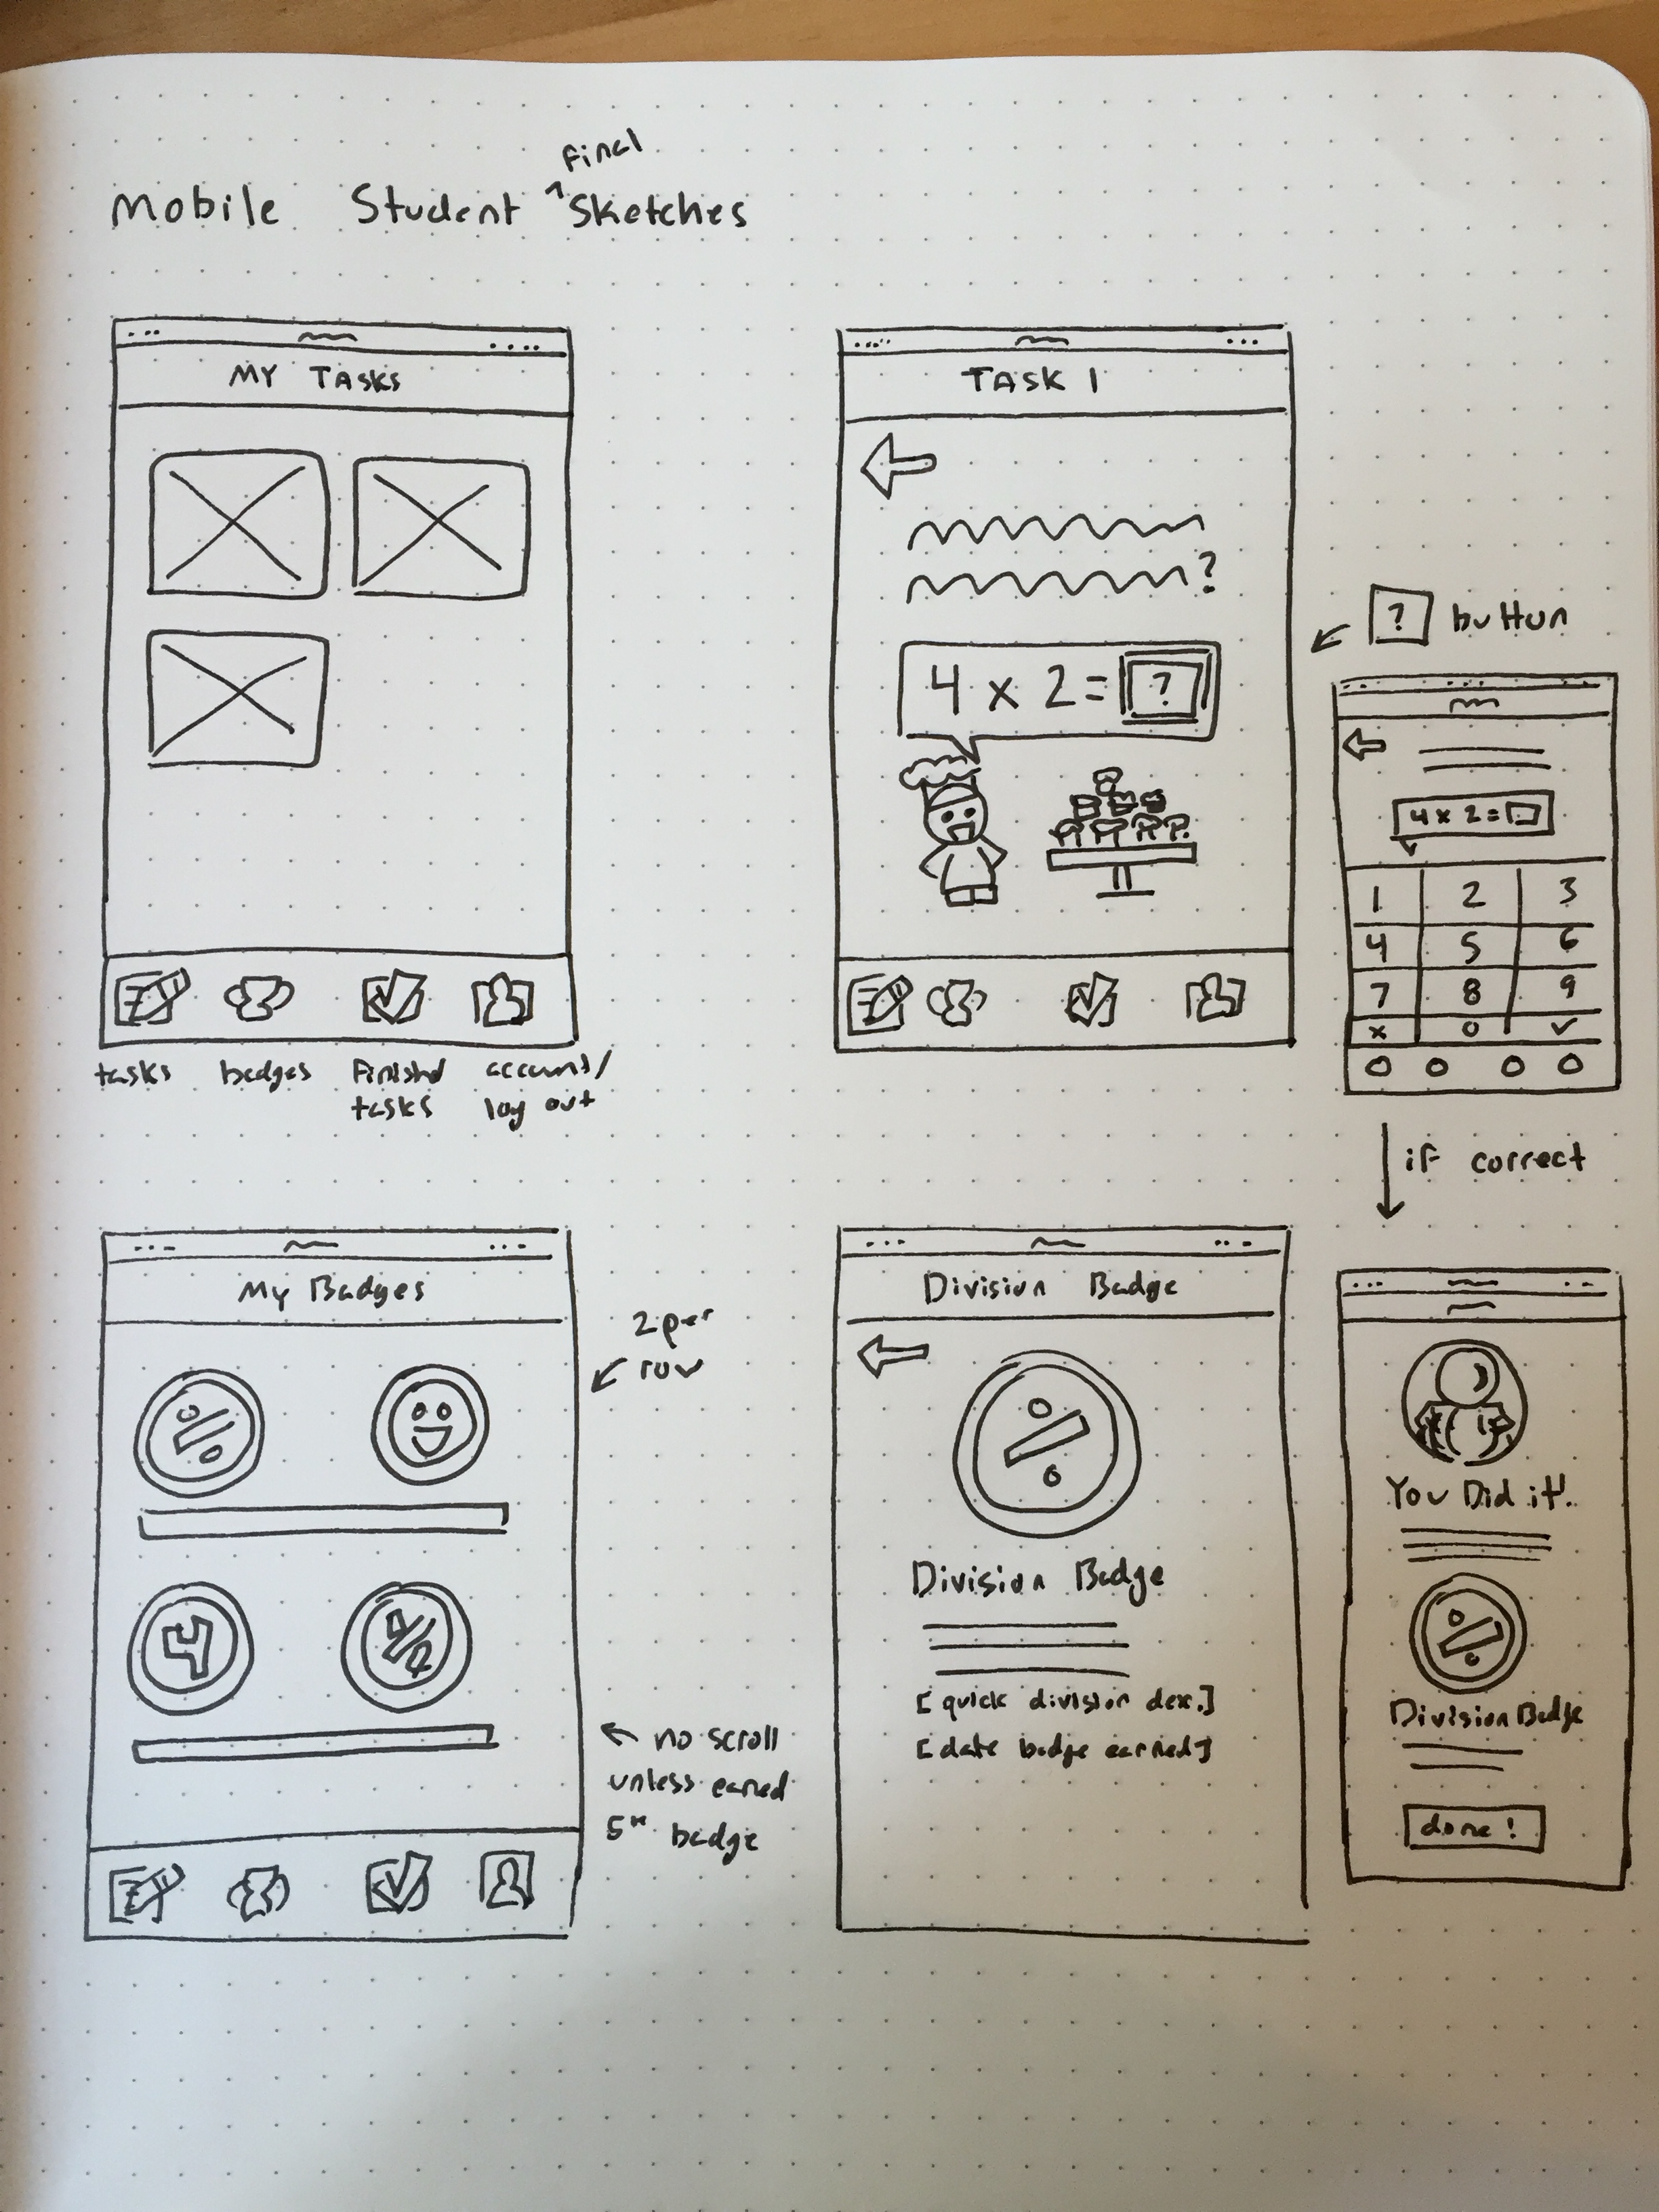 final
Mobile Student ^ Sketches
MY TASKS
tasks
badges
finished
tasks
account/
log out
TASK 1
?
4 x 2 = ?
? button
4 x 2 =
1 2 3
4 5 6
7 8 9
x 0 ✓
if correct
My Badges
÷
4
2 per
row
no scroll
unless earned
5th badge
Division Badge
÷
Division Badge
[quick division dex.]
[date badge earned]
You Did it!
÷
Division Badge
done!